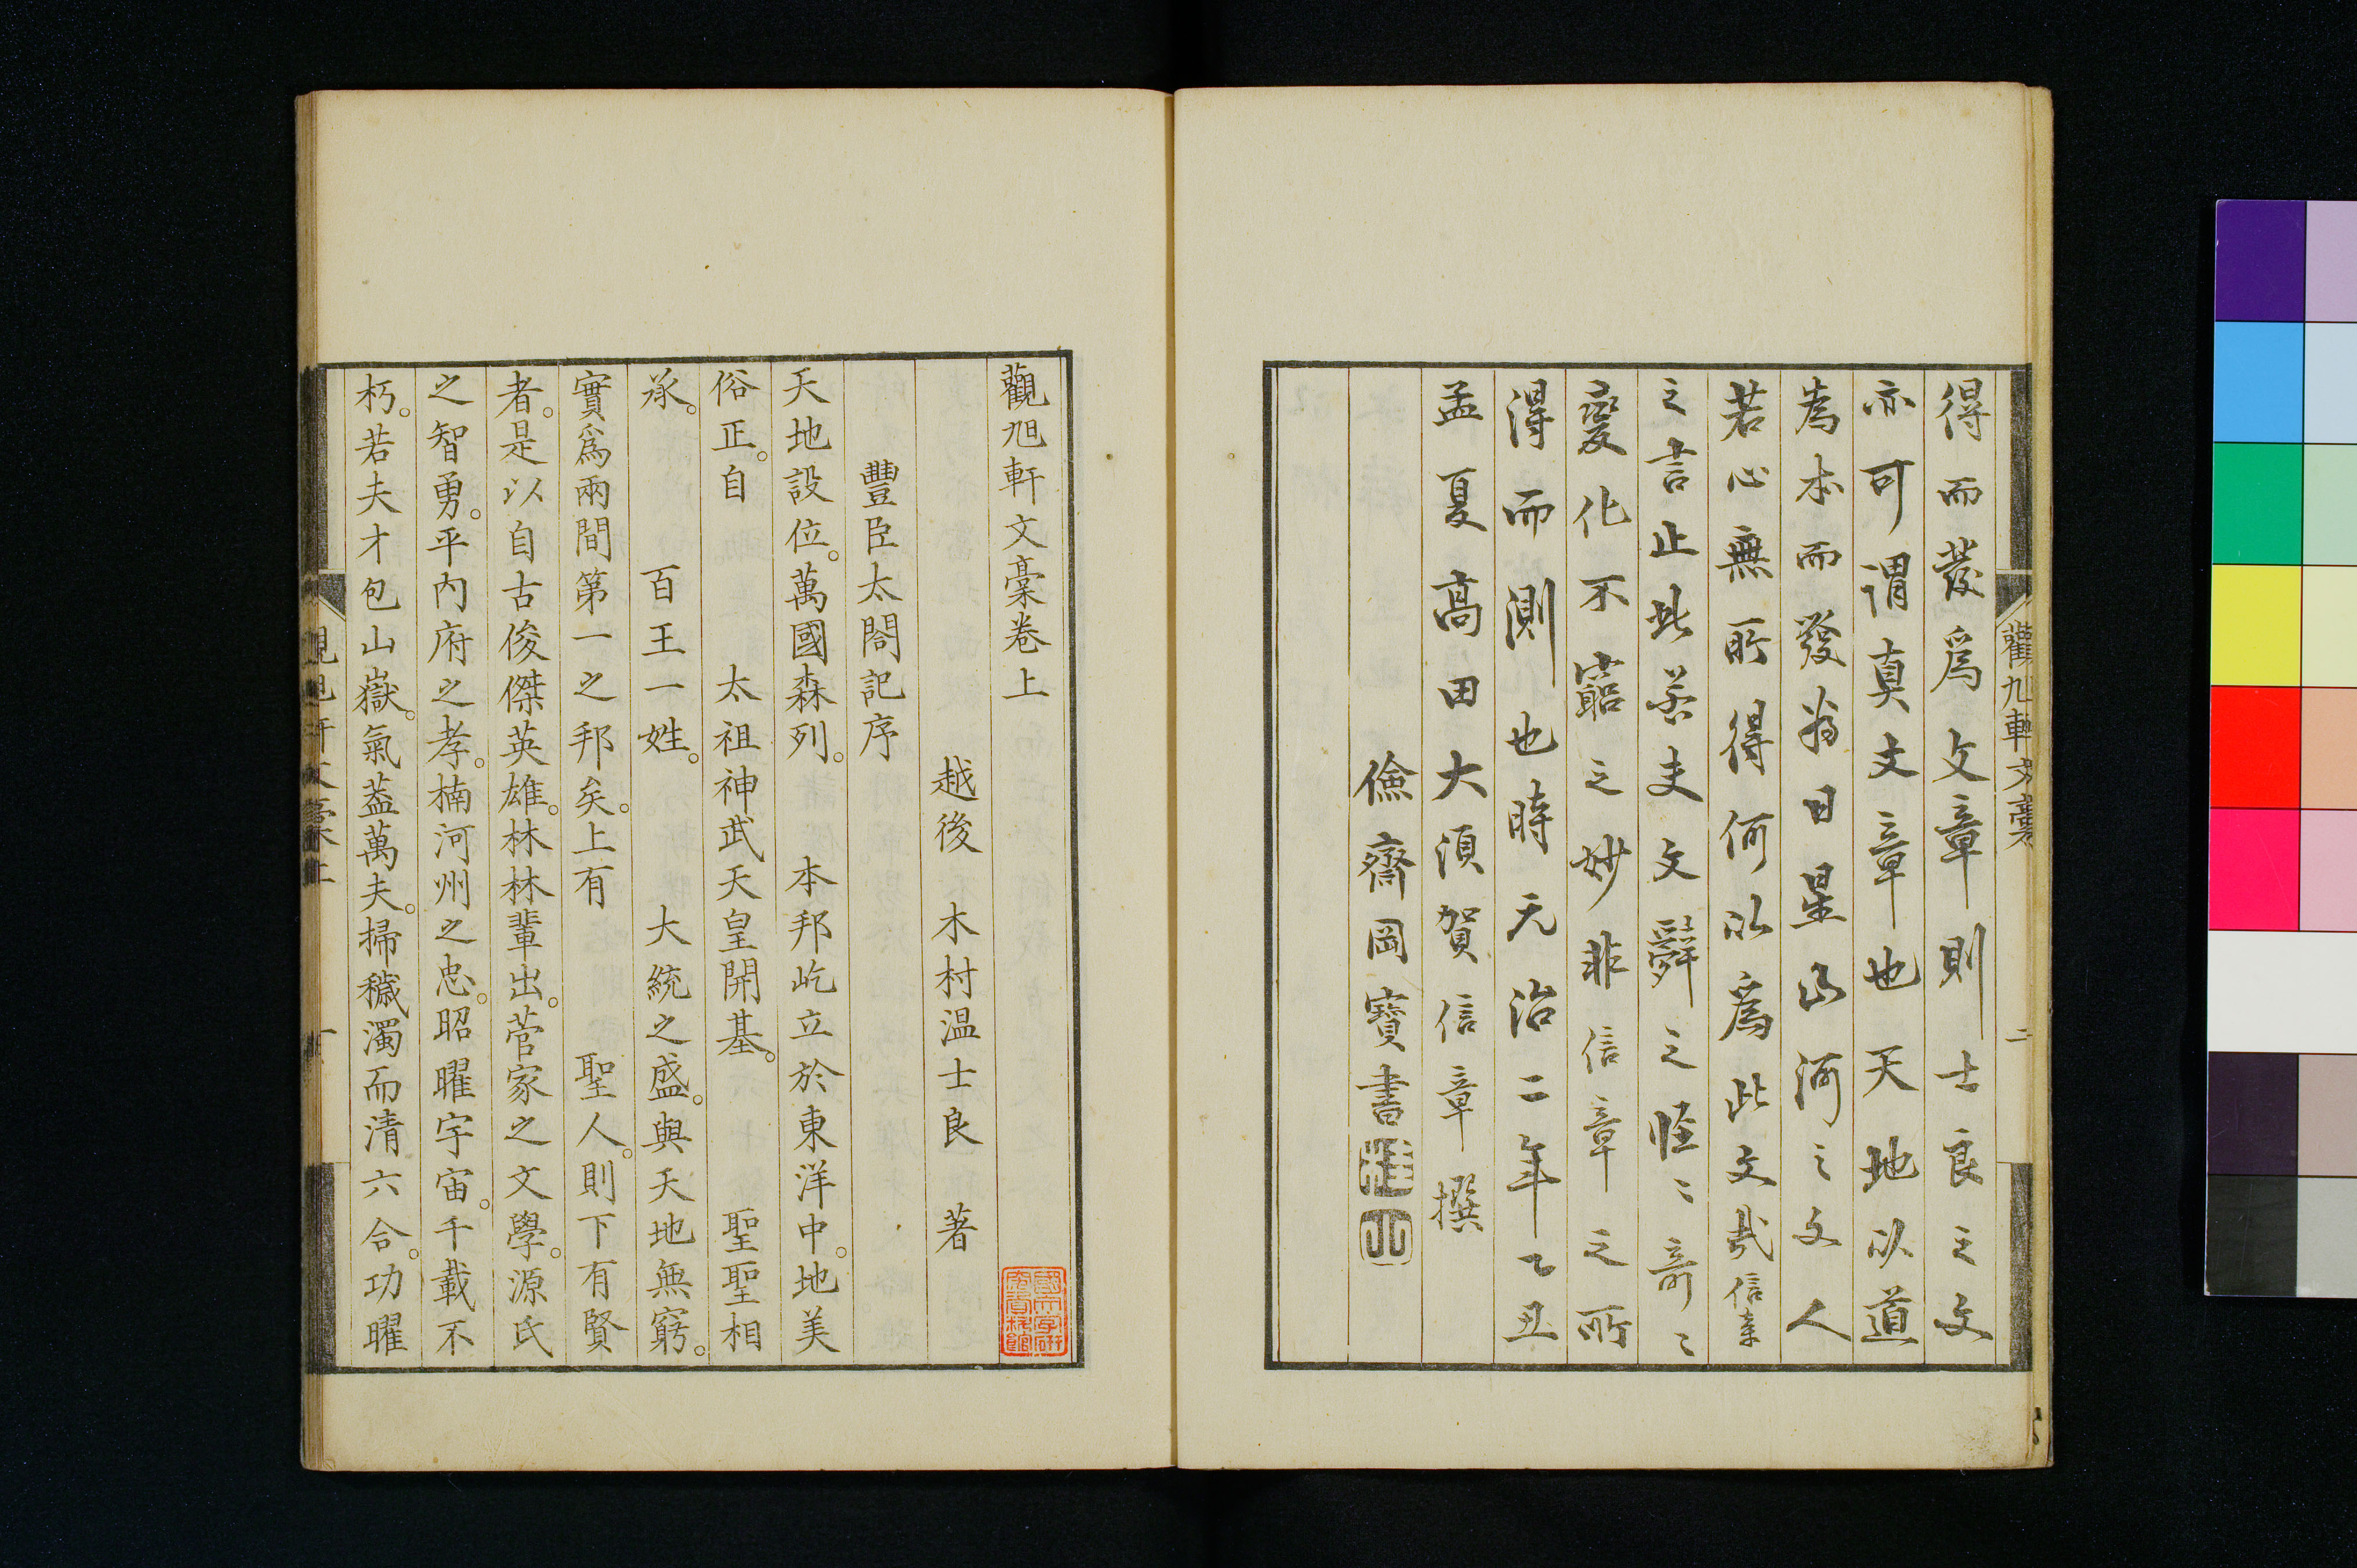 得而發爲文章則士良之文
亦可謂真文章也天地以道
為本而發為日星山河之文人
若心無所得何以爲此文哉信章
之言止此若夫文辭之怪〻奇〻
變化不窮之妙非信章之所
得而測也時元治二年乙丑
孟夏高田大須賀信章撰
儉齋岡寶書
觀旭軒文稾
二
觀旭軒文稾卷上
越後 木村温士良 著
豐臣太閤記序
天地設位。萬國森列。 本邦屹立於東洋中。地美
俗正。自 太祖神武天皇開基。 聖聖相
承。 百王一姓。 大統之盛。與天地無窮。
實爲兩間第一之邦矣。上有 聖人。則下有賢
者。是以自古俊傑英雄。林林輩出。菅家之文學。源氏
之智勇。平内府之孝。楠河州之忠。昭曜宇宙。千載不
朽。若夫才包山嶽。氣蓋萬夫。掃穢濁而清六合。功曜